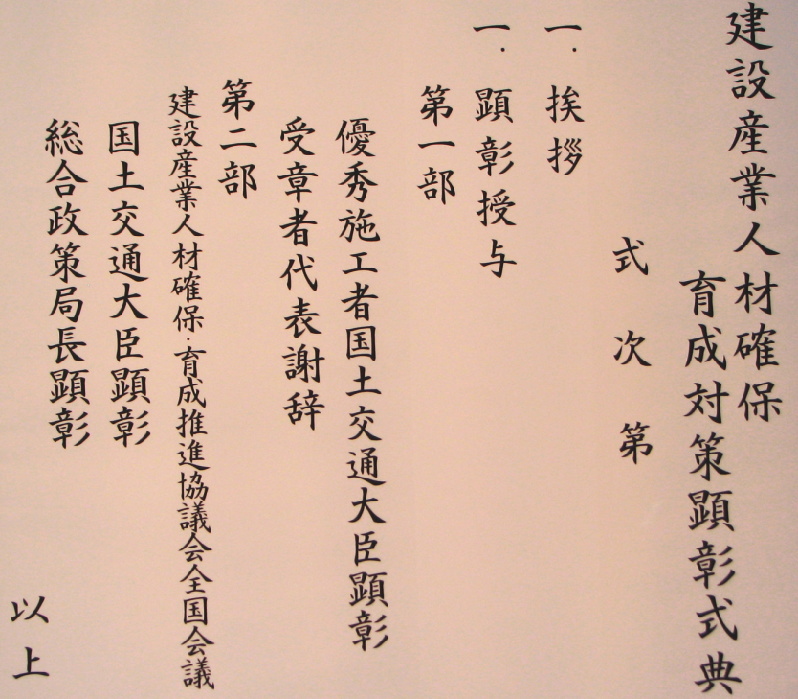 建設産業人材確保
育成対策顕彰式典
式次第
一.挨拶
一.顕彰授与
第一部
優秀施工者国土交通大臣顕彰
受章者代表謝辞
第二部
建設産業人材確保・育成推進協議会全国会議
国土交通大臣顕彰
総合政策局長顕彰
以上